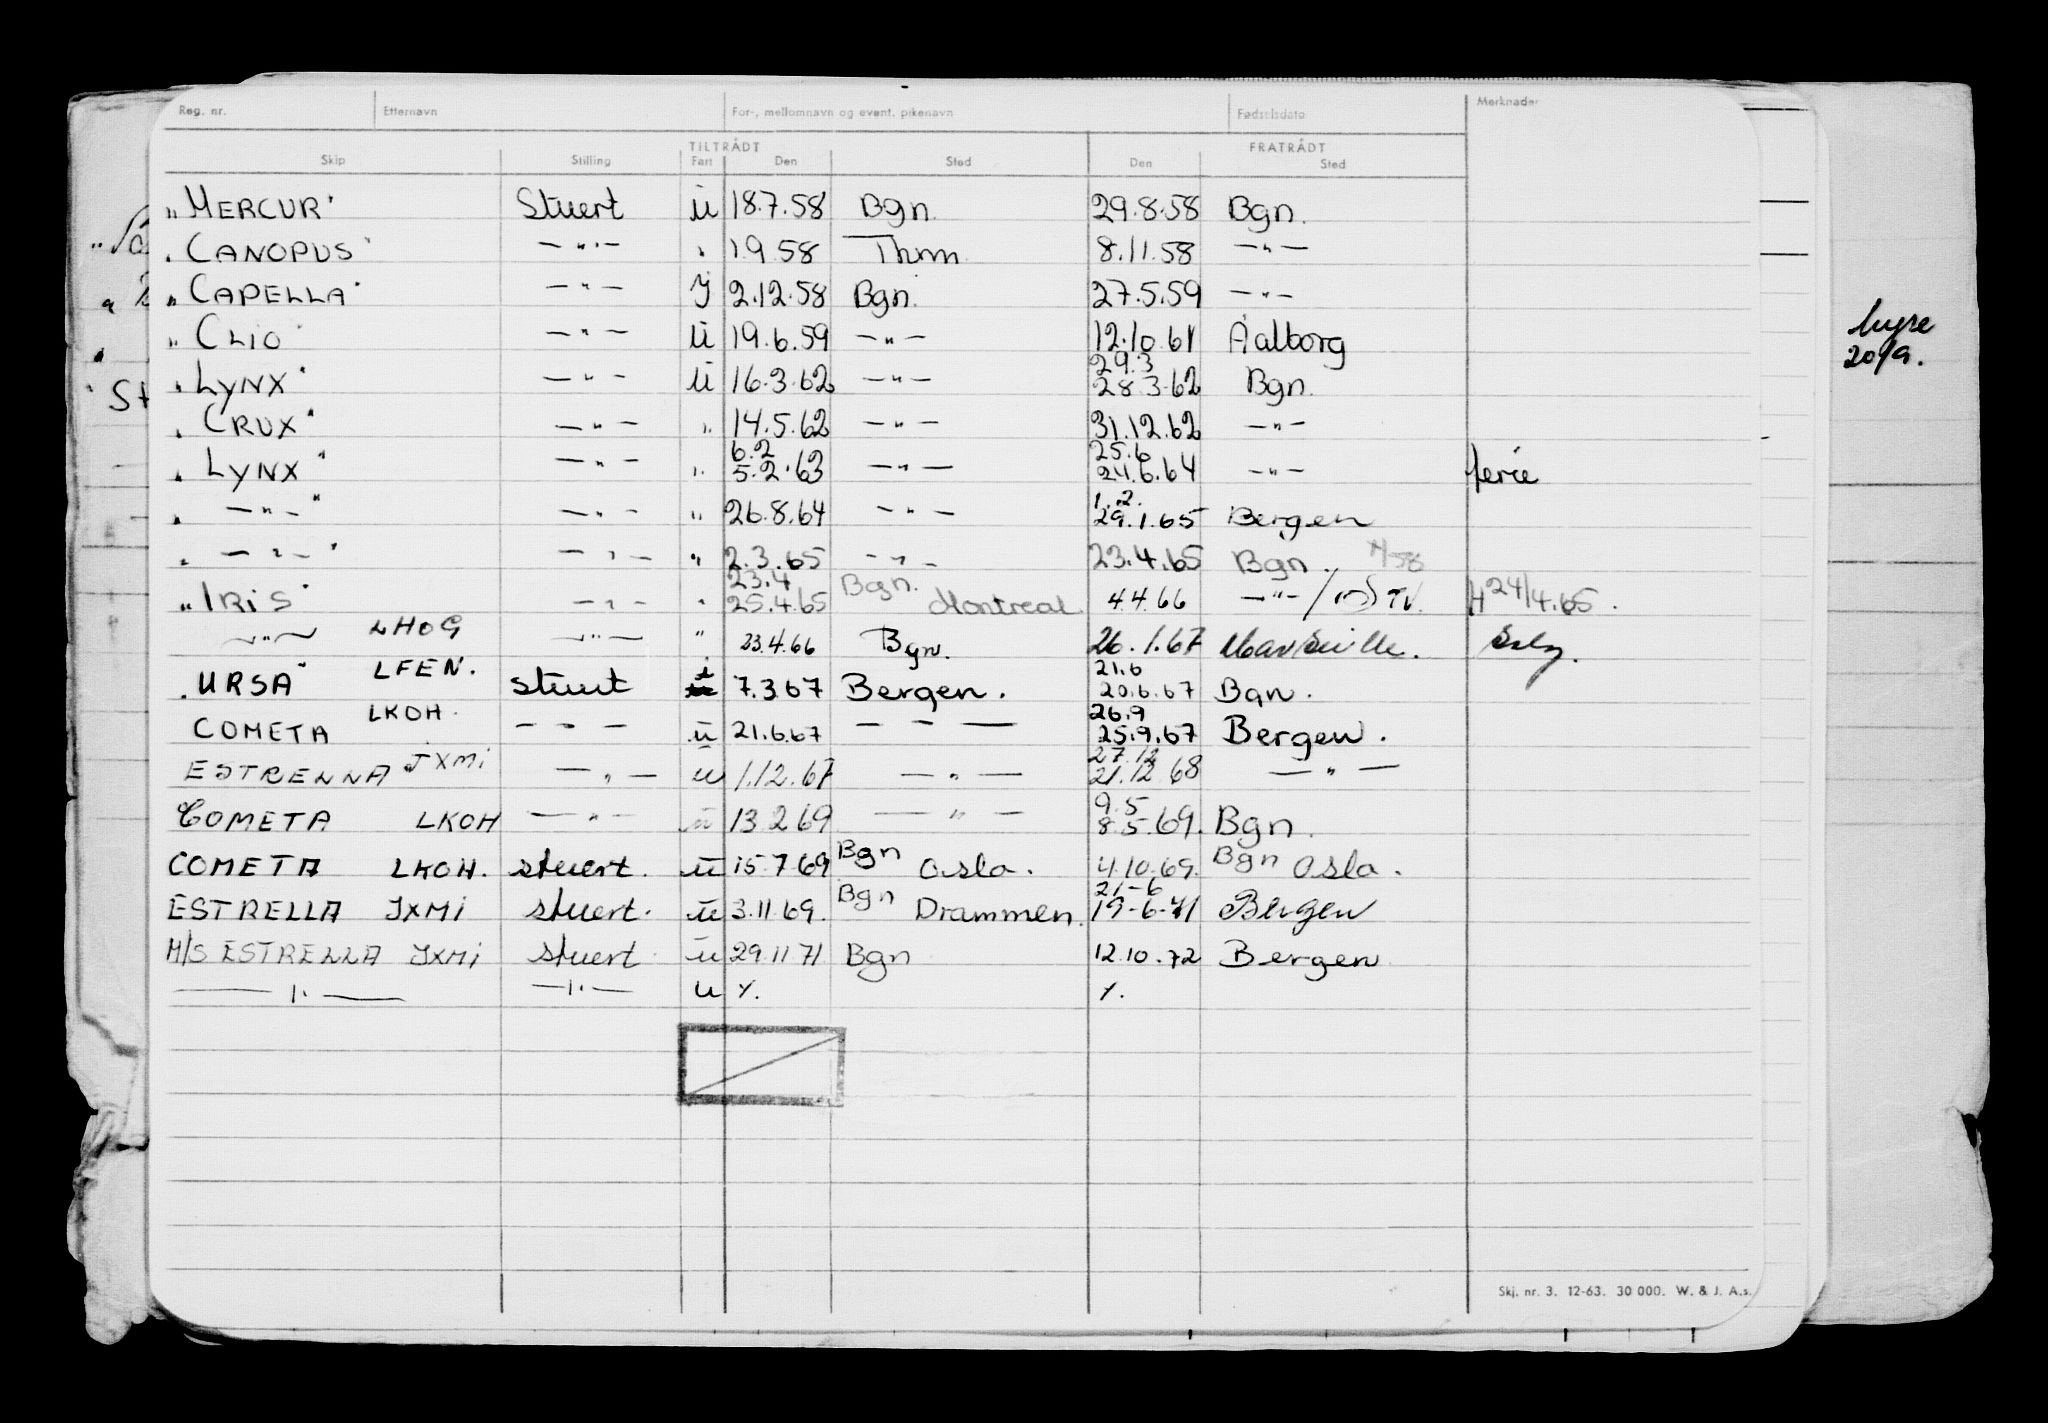 Reg. nr. Etternavn For-, mellomnavn og event. pikenavn Fødselsdato Merknader
TILTRÅDT FRATRÅDT
Skip Stilling Fart Den Sted Den Sted
„ MERCUR" Stuert ü 18.7.58 Bgn. 29.8.58 Bgn.
„ CANOPUS" —"— " 1.9.58 Thm 8.11.58 —"—
„ CAPELLA" —"— J 2.12.58 Bgn. 27.5.59 —"—
„ CLIO" —"— ü 19.6.59 —"— 12.10.61 Aalborg
29.3
„ LYNX" —"— ü 16.3.62 —"— 28.3.62 Bgn.
„ CRUX" —"— " 14.5.62 —"— 31.12.62 —"—
6.2 25.6
„ LYNX" —"— " 5.2.63 —"— 24.6.64 —"— ferie
1.2.
„ —"—" —"— " 26.8.64 —"— 29.1.65 Bergen
„ —"—" —"— " 2.3.65 —"— 23.4.65 Bgn.
23.4 Bgn.
„ IRIS" —"— " 25.4.65 Montreal 4.4.66 —"— H 24/4.65.
—"— LHOG —"— " 23.4.66 Bgn. 26.1.67 Marseille.
21.6
„ URSA" LFEN. stuert 7.3.67 Bergen. 20.6.67 Bgn.
26.9
COMETA LKOH. — " — ü 21.6.67 — " — 25.9.67 Bergen.
27.12
ESTRENNA JXMi —"— ü 1.12.67 —"— 21.12.68 —"—
9.5
COMETA LKOH —"— ü 13.2.69 —"— 8.5.69. Bgn.
COMETA LKOH. stuert. ü 15.7.69 Bgn Oslo. 4.10.69. Bgn Oslo.
21-6
ESTRELLA JXMi stuert. ü 3.11.69. Bgn Drammen. 19-6-71 Bergen
M/S ESTRELLA JXMi stuert ü 29.11.71 Bgn 12.10.72 Bergen
—"— —"— u
Skj. nr. 3. 12-63. 30 000. W. & J. A.s.
St
20/9.